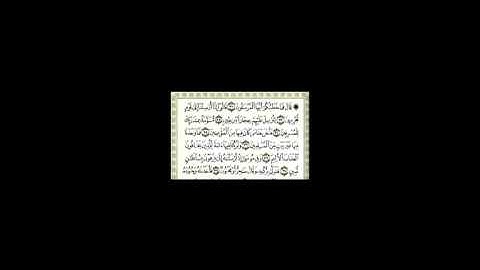 ۞ قَالَ فَمَا خَطْبُكُمْ أَيُّهَا ٱلْمُرْسَلُونَ ٣١ قَالُوٓا۟ إِنَّآ أُرْسِلْنَآ إِلَىٰ قَوْمٍ
مُّجْرِمِينَ ٣٢ لِنُرْسِلَ عَلَيْهِمْ حِجَارَةً مِّن طِينٍ ٣٣ مُّسَوَّمَةً عِندَ رَبِّكَ
لِلْمُسْرِفِينَ ٣٤ فَأَخْرَجْنَا مَن كَانَ فِيهَا مِنَ ٱلْمُؤْمِنِينَ ٣٥ فَمَا وَجَدْنَا
فِيهَا غَيْرَ بَيْتٍ مِّنَ ٱلْمُسْلِمِينَ ٣٦ وَتَرَكْنَا فِيهَآ ءَايَةً لِّلَّذِينَ يَخَافُونَ
ٱلْعَذَابَ ٱلْأَلِيمَ ٣٧ وَفِى مُوسَىٰٓ إِذْ أَرْسَلْنَٰهُ إِلَىٰ فِرْعَوْنَ بِسُلْطَٰنٍ
مُّبِينٍ ٣٨ فَتَوَلَّىٰ بِرُكْنِهِۦ وَقَالَ سَٰحِرٌ أَوْ مَجْنُونٌ ٣٩ فَأَخَذْنَٰهُ وَجُنُودَهُۥ